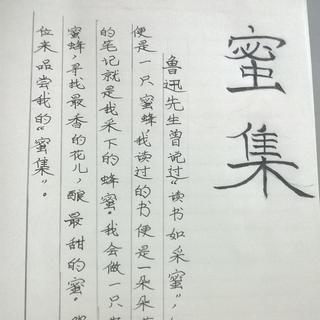 蜜集
鲁迅先生曾说过“读书如采蜜”,
便是一只蜜蜂,我读过的书便是一朵朵
的笔记就是我采下的蜂蜜。我会做一只
蜜蜂,寻找最香的花儿,酿最甜的蜜。
位来品尝我的“蜜集”。